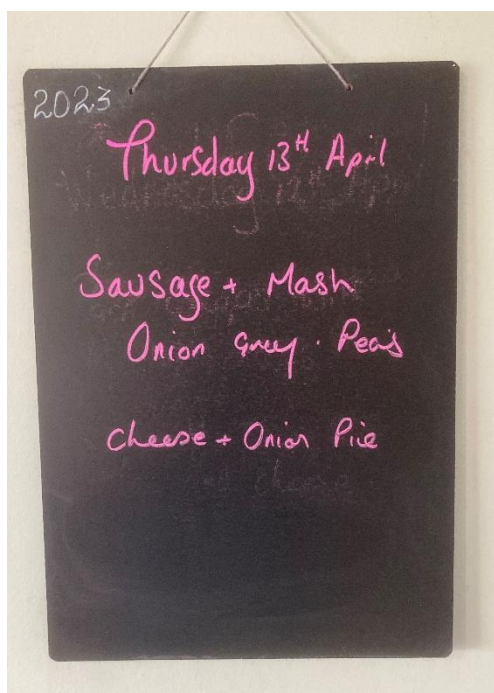 2023
Thursday 13th April
Sausage + Mash
Onion Gravy · Peas
Cheese + Onion Pie